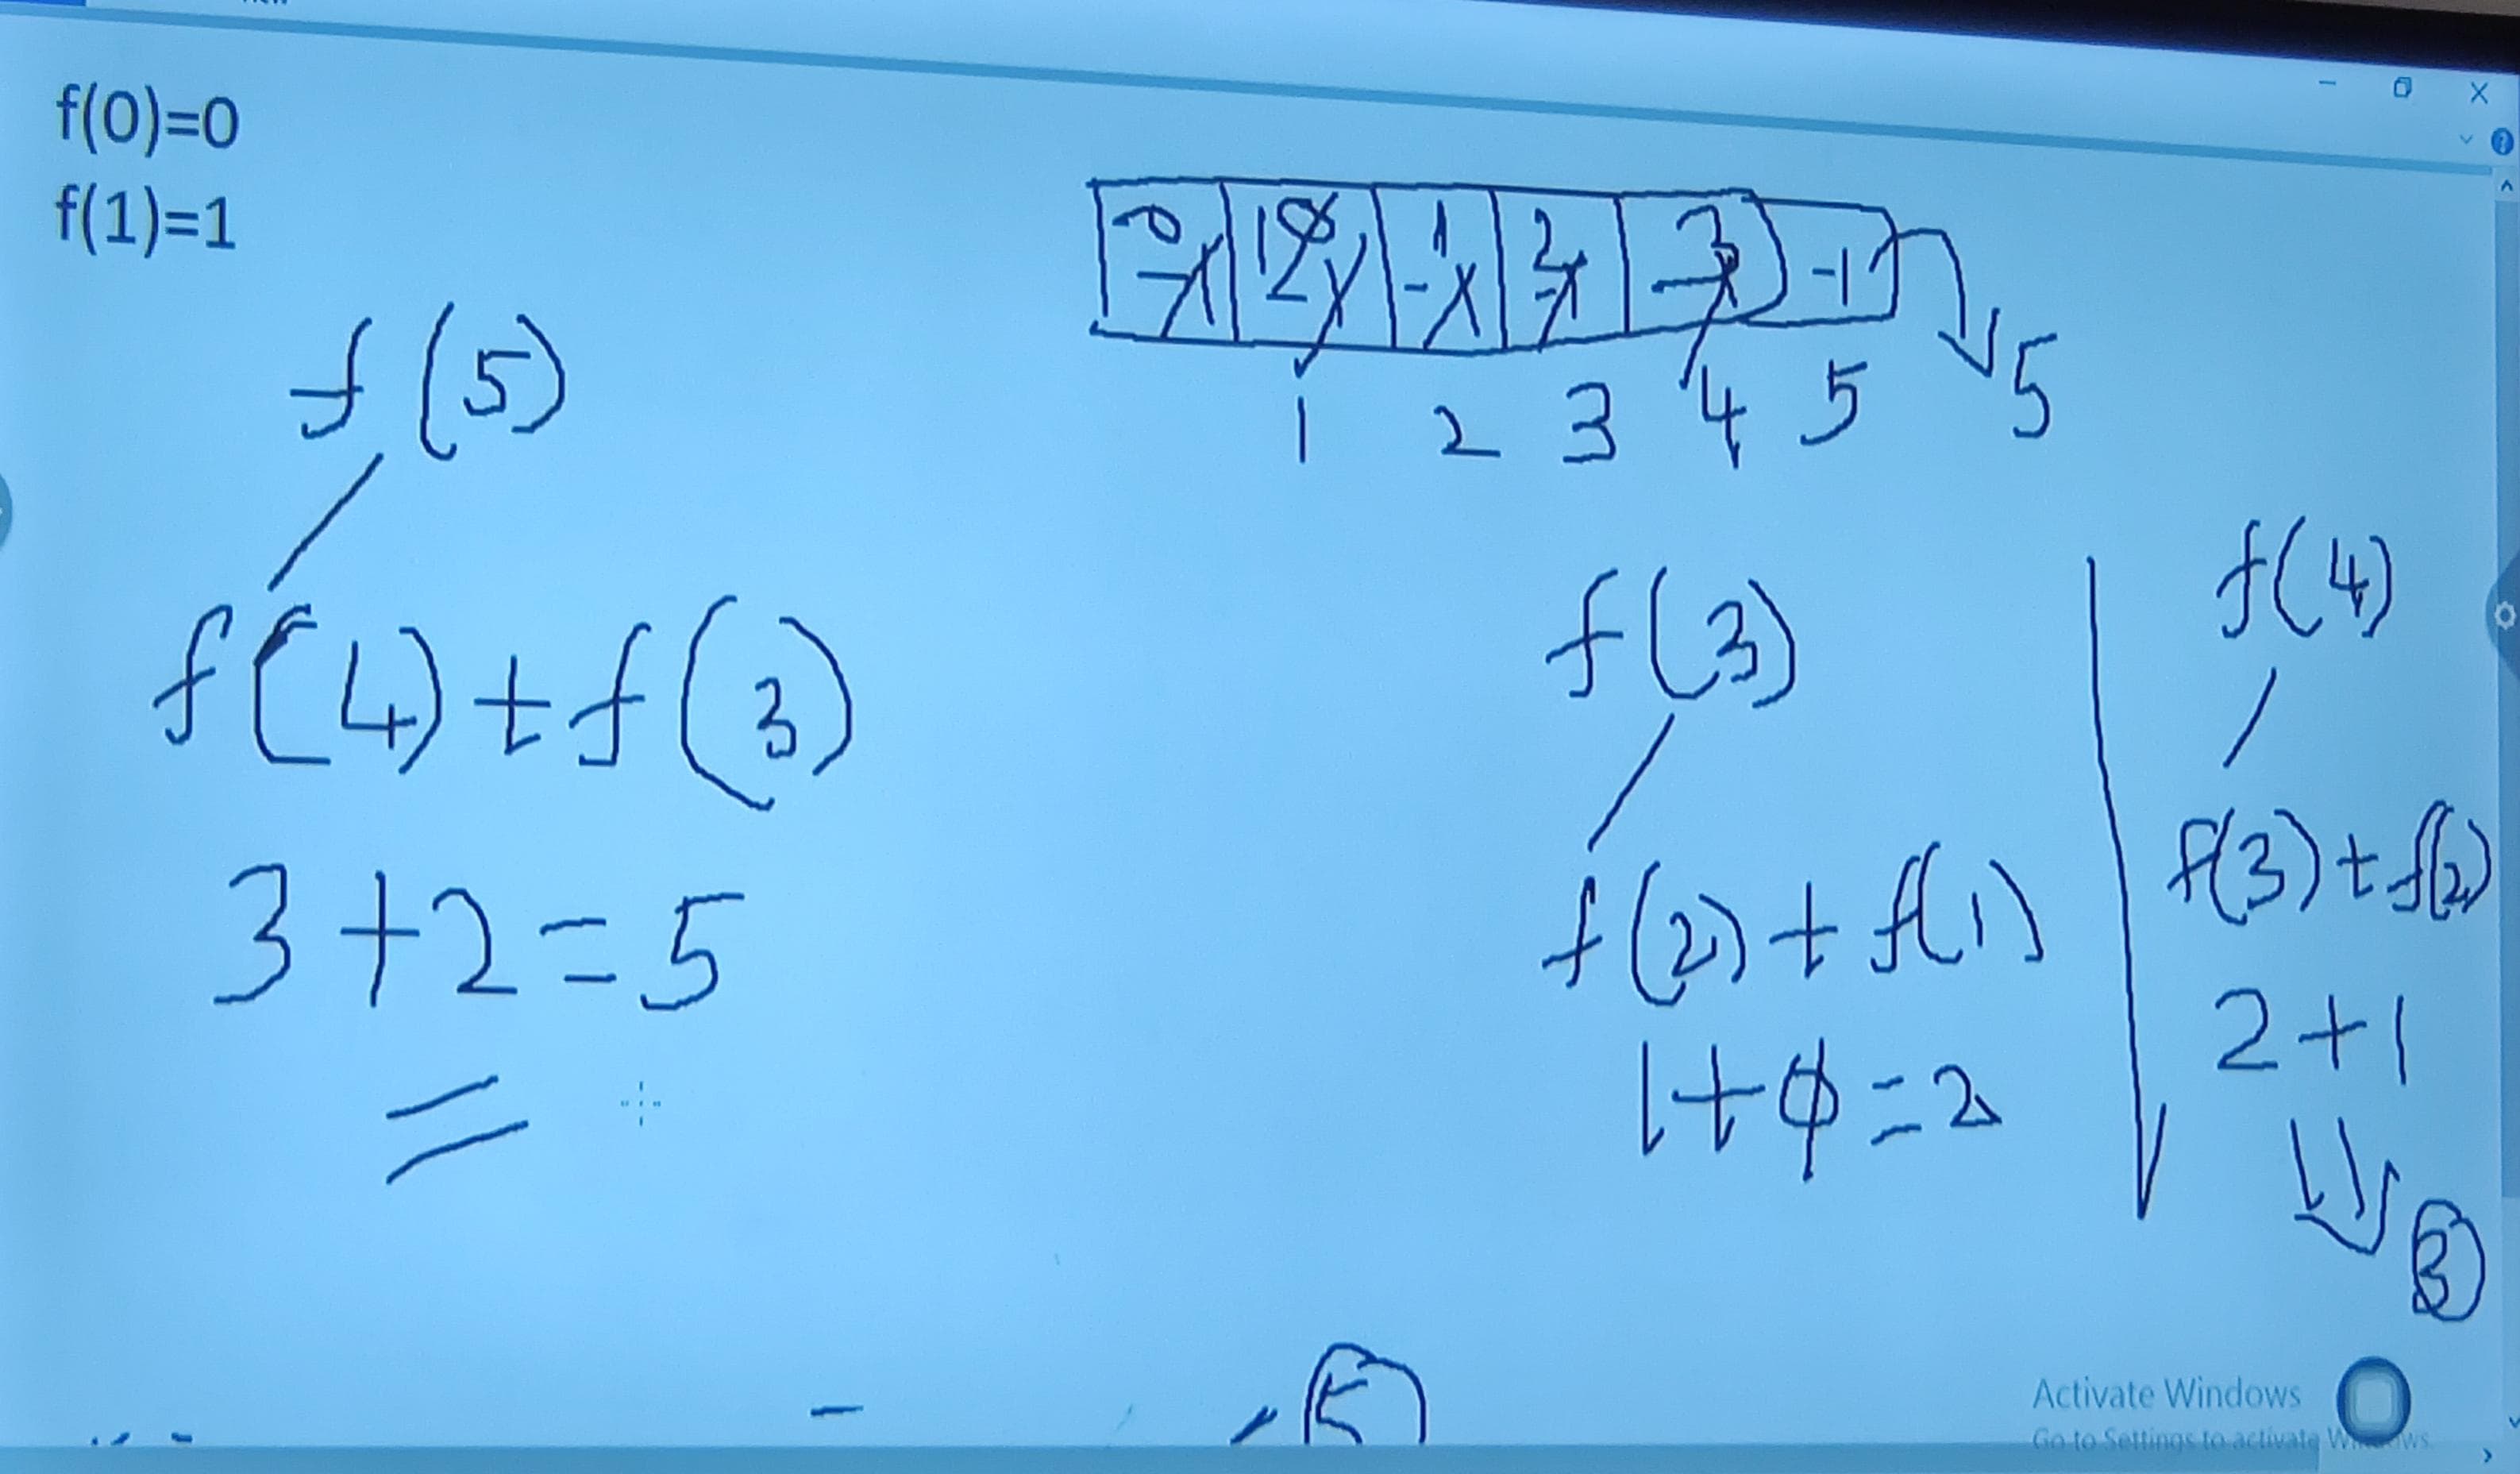 f(0)=0
f(1)=1
0 1 1 2 3 -1
1 2 3 4 5 5
f(5)
f(4)+f(3)
3+2=5
f(3)
f(2)+f(1)
1+0=2
f(4)
f(3)+f(2)
2+1
3
5
Activate Windows
Go to Settings to activate Windows.